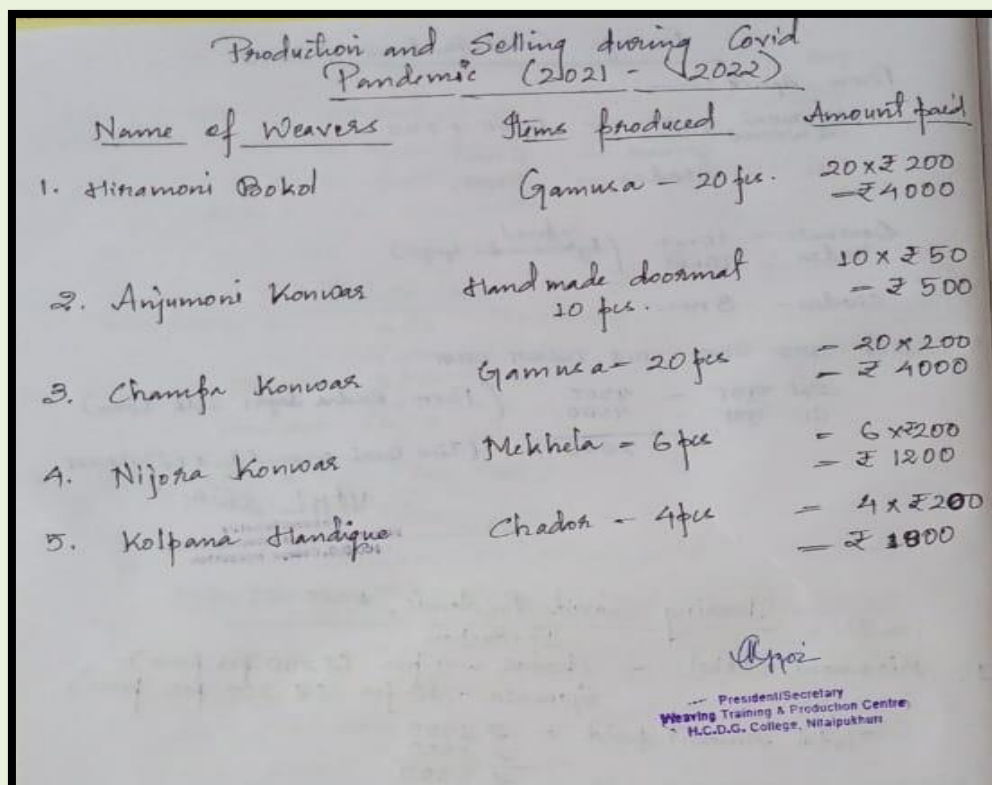 Production and Selling during Covid
Pandemic (2021 - 2022)
Name of Weavers Items produced Amount paid
1. Hiramoni Bokol Gamusa - 20 pcs. 20 x ₹ 200
- ₹ 4000
2. Anjumoni Konwar Hand made doormat 10 x ₹ 50
10 pcs. - ₹ 500
3. Champa Konwar Gamusa - 20 pcs = 20 x 200
= ₹ 4000
4. Nijora Konwar Mekhela = 6 pcs = 6 x ₹200
= ₹ 1200
5. Kolpana Handique Chador - 4 pcs = 4 x ₹200
= ₹ 1800
President/Secretary
Weaving Training & Production Centre
H.C.D.G. College, Nitaipukhuri